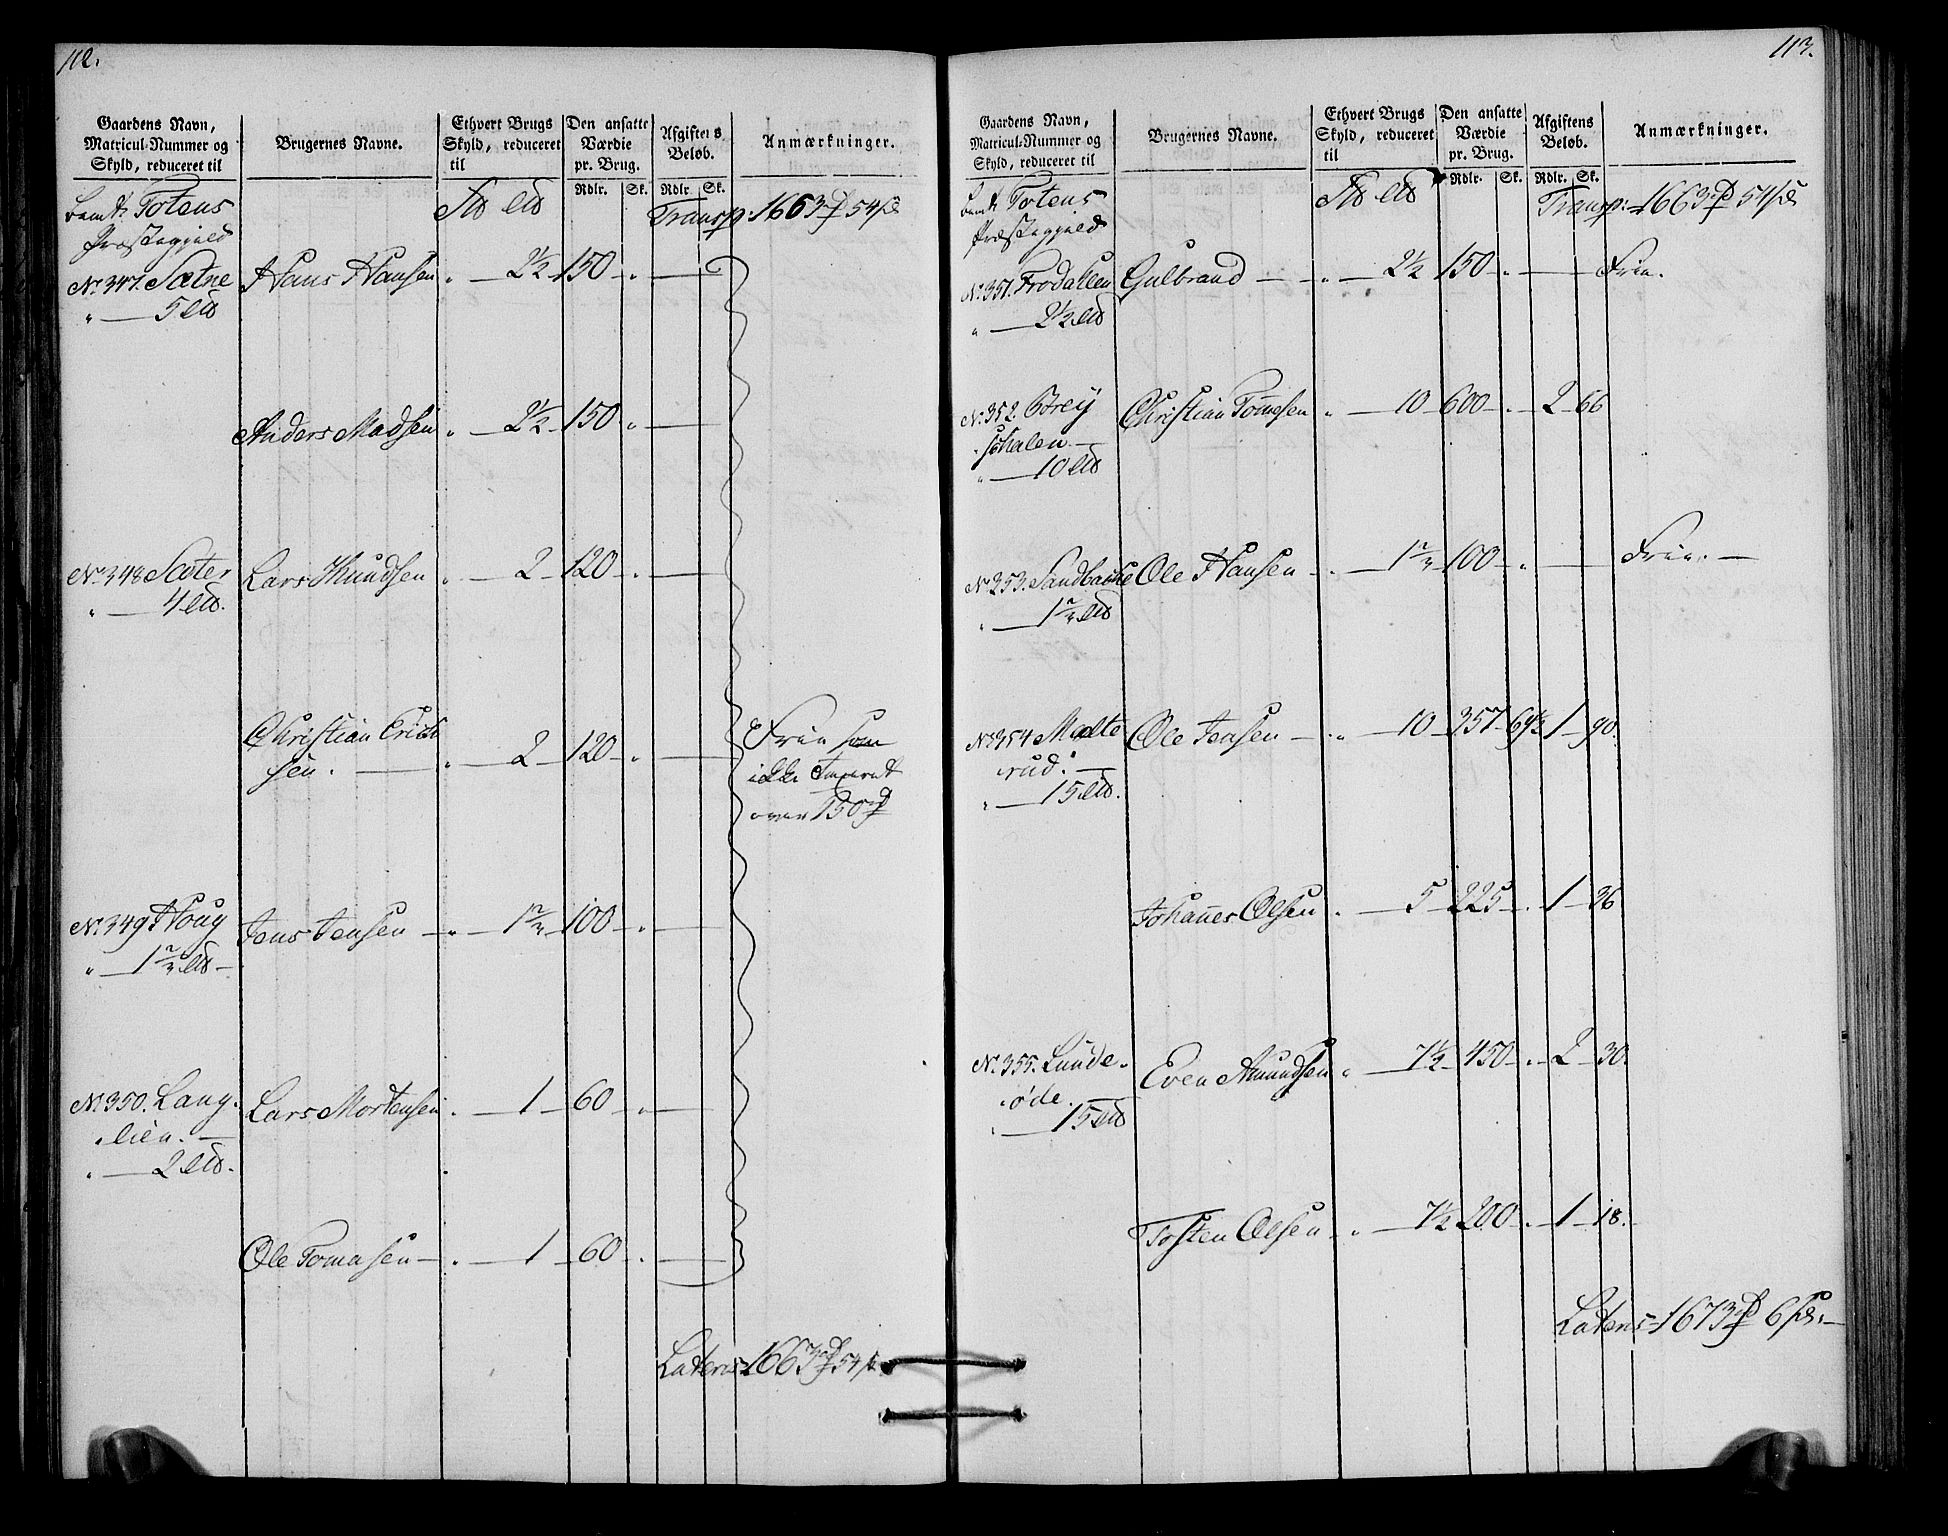 112.
Gaardens Navn, Matricul-Nummer og Skyld, reduceret til | Brugernes Navne. | Ethvert Brugs Skyld, reduceret til | Den ansatte Værdie pr. Brug. Rdlr. Sk. | Afgiftens Beløb. Rdlr. Sk. | Anmærkninger.
bemt. Totens Transp: 1663 54
Præstegjeld
No. 347. Sætne Hans Hansen " 2½ 150 "
" 5
Anders Madsen " 2½ 150 "
No. 348 Sæter Lars Knudsen " 2 120 "
" 4
Christian Erich Frie som
sen. " 2 120 " ikke Taxeret
over 150
No. 349 Houg Jens Jensen " 1⅔ 100 "
" 1⅔
No. 350. Lang- Lars Mortensen " 1 60 "
lien.
" 2
Ole Tomasen " 1 60 "
Lateris 1663 54
113.
Gaardens Navn, Matricul-Nummer og Skyld, reduceret til | Brugernes Navne. | Ethvert Brugs Skyld, reduceret til | Den ansatte Værdie pr. Brug. Rdlr. Sk. | Afgiftens Beløb. Rdlr. Sk. | Anmærkninger.
bemt. Totens Transp: 1663 54
Præstegjeld
No. 351. Frodahlen Gulbrand " 2½ 150 " Frie.
" 2½
No. 352. Christian Tomesen " 10 600 " 2 66
" 10
No. 353. Sandbache Ole Hansen " 1⅔ 100 " Frie.
" 1⅔
No. 354 Melte Ole Jensen " 10 357 64½ 1 90.
rud.
" 15
Johannes Olsen " 5 225 " 1 36
No. 355. Lunde- Even Amundsen " 7½ 450 " 2 30.
øde.
" 15
Tosten Olsen " 7½ 200 " 1 18.
Lateris 1673 6